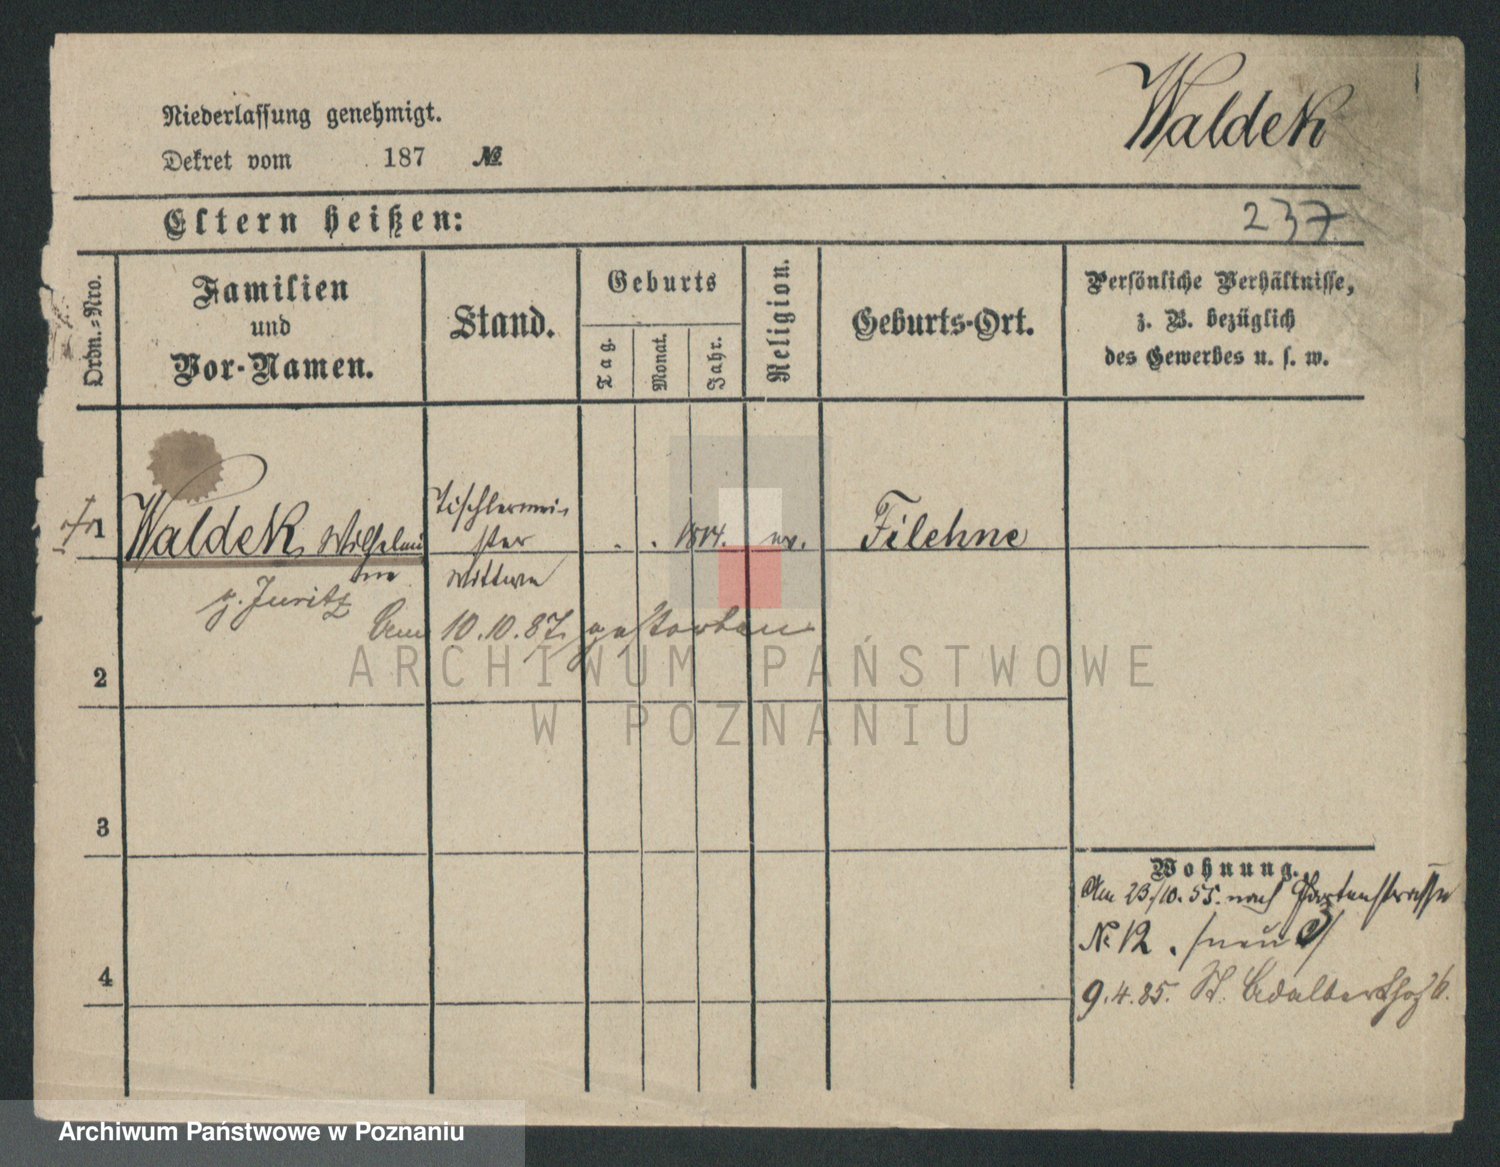 Waldek
Niederlassung genehmigt.
Dekret vom 187 №
Eltern heißen:
237
Ordn.-Nro.
Familien
und
Vor-Namen.
Stand.
Geburts
Tag.
Monat.
Jahr.
Religion.
Geburts-Ort.
Persönliche Verhältnisse,
z. B. bezüglich
des Gewerbes u. s. w.
1
Waldek, Wilhelmi
ne
g. Juritz
Tischlermei-
ster
Wittwe
. . 1814. ev.
Filehne
Am 10.10.87. gestorben
2
3
4
Wohnung.
Am 23/10. 55. nach Gartenstrasse
№ 12. /neu
9.4.85. St. Adalbert
ARCHIWUM PAŃSTWOWE
W POZNANIU
Archiwum Państwowe w Poznaniu